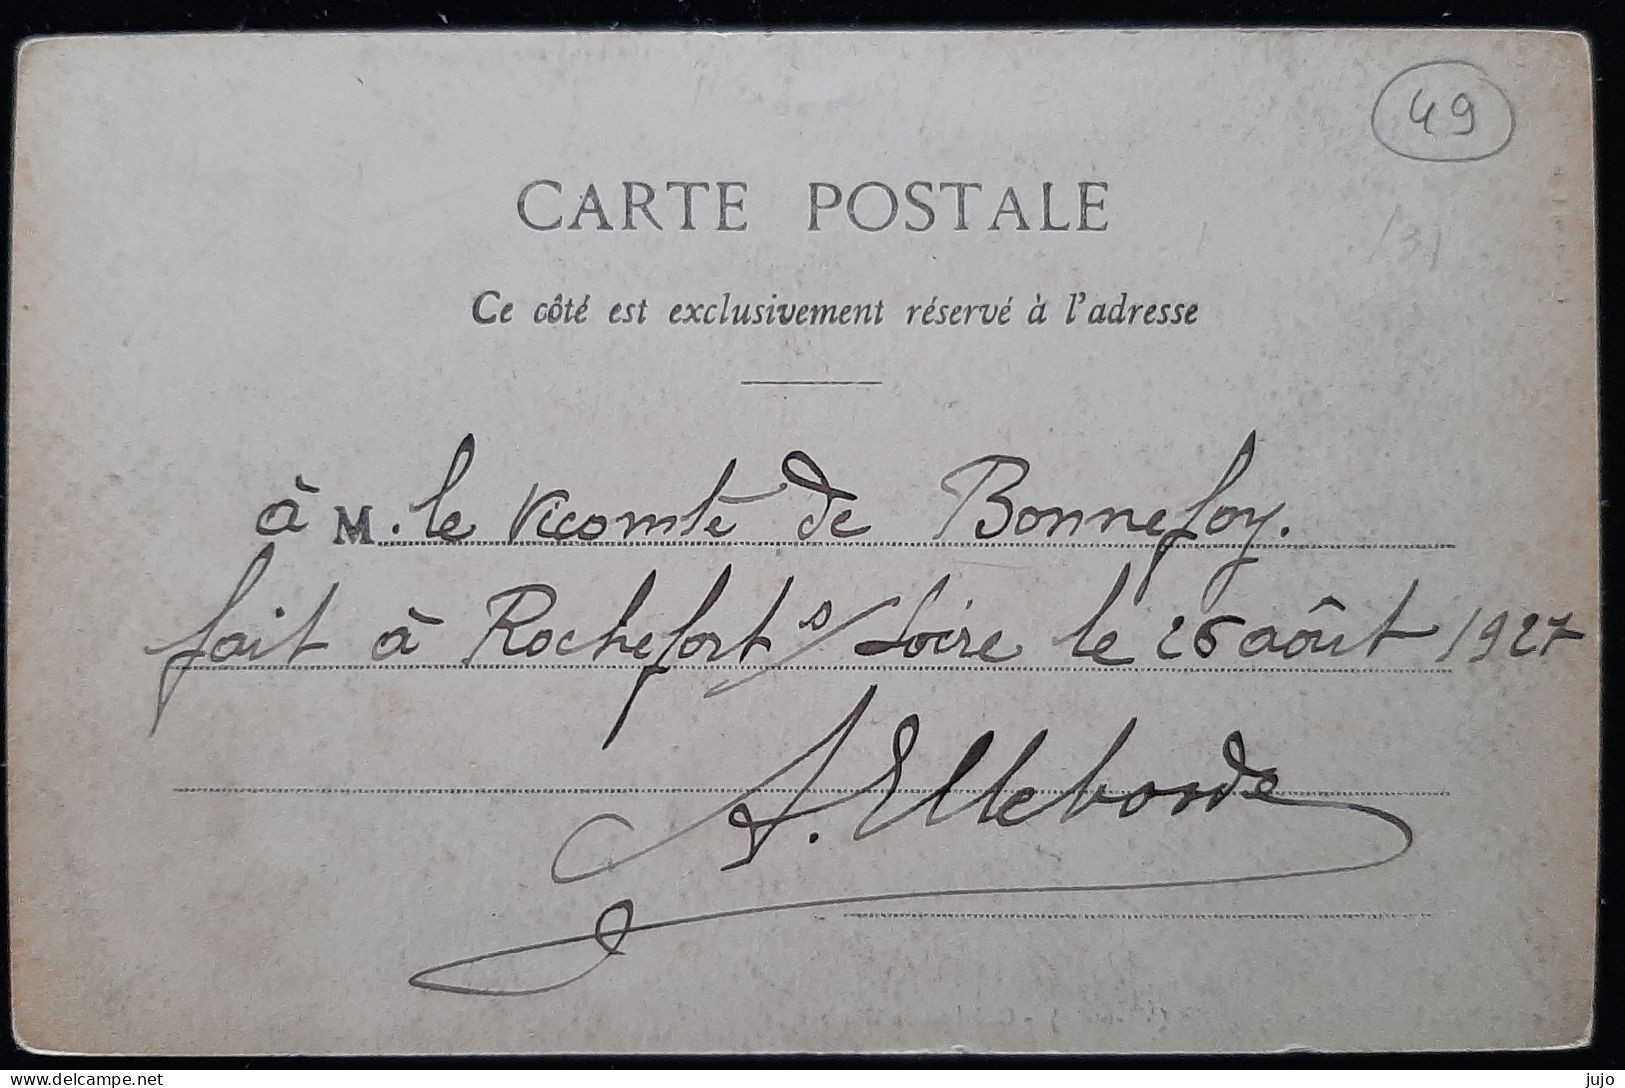 49
CARTE POSTALE
Ce côté est exclusivement réservé à l'adresse
à M. le Vicomte de Bonnefoy.
fait à Rochefort s/Loire le 26 août 1927
A. Elleborde
www.delcampe.net
jujo